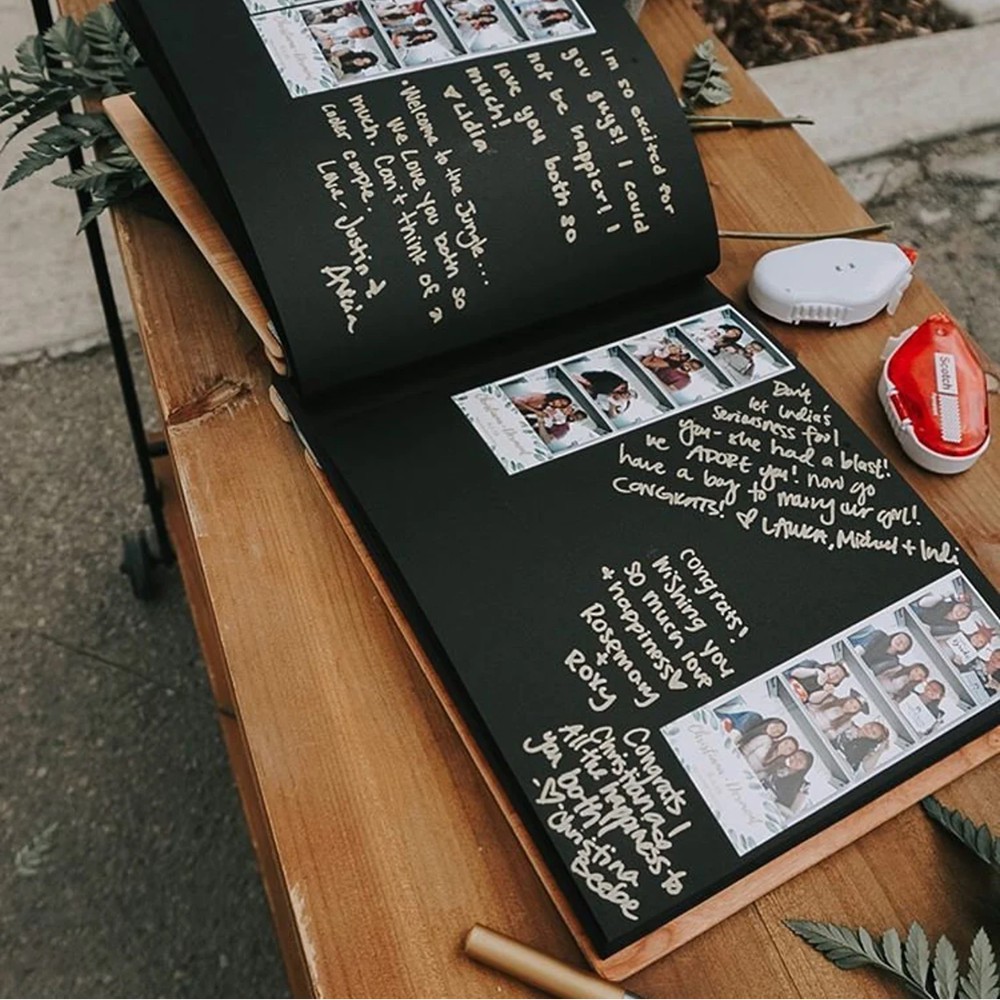 I'm so excited for
you guys! I could
not be happier! I
love you both so
much!
♥ Lidia
"Welcome to the Jungle...
We Love You both so
much. Can't think of a
cooler couple.
Love, Justin +
Arcia
Don't
let India's
seriousness fool
you - she had a blast!
we ADORE you! now go
have a boy to marry our girl!
CONGRATS! ♥ LAURA, Michael + Indi
congrats!
wishing you
so much love
+ happiness ♥
Rosemary
+
Roxy
Congrats
Christiana &
All the happiness to
you both!
♡ Christina
Beebe
Scotch